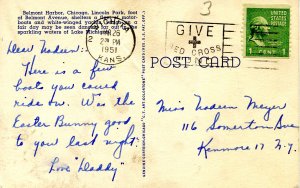 Belmont Harbor, Chicago. Lincoln Park, foot
of Belmont Avenue, shelters a fleet of motor-
boats and white-winged yachts which on a
fair day may be seen dancing on the
sparkling waters of Lake Michigan.
Dear Nadeen:
Here is a few
boats you could
ride on. Was the
Easter Bunny good
to you last night.
Love "Daddy"
26
2 PM
1951
KANS.
GIVE
+
RED CROSS
3
1 CENT 1
POST CARD
Miss Nadeen Meyer
116 Somerton Ave
Kenmore 17 N.Y.